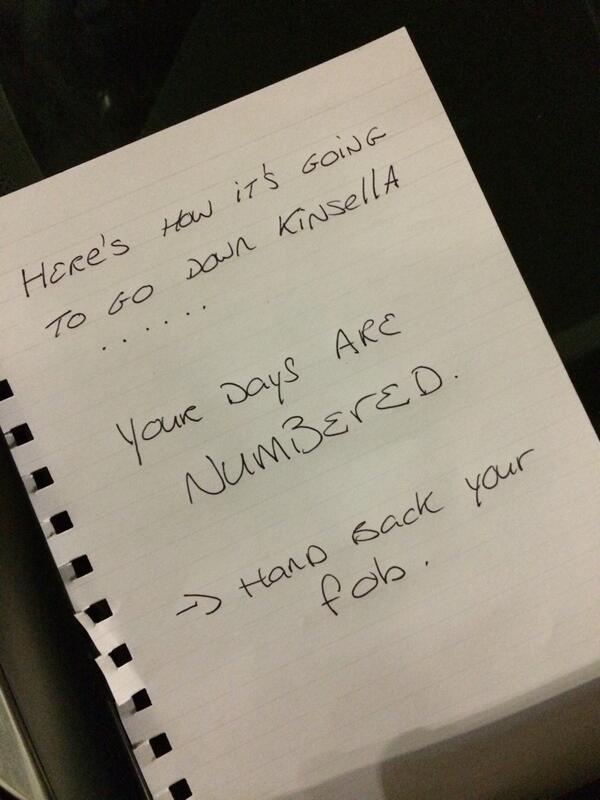 HERE'S HOW iT'S GOiNG
TO GO DOWN KiNSEllA
......
YOUR DAYS ARE
NUMBERED.
→ HAND BACK YOUR
fob.